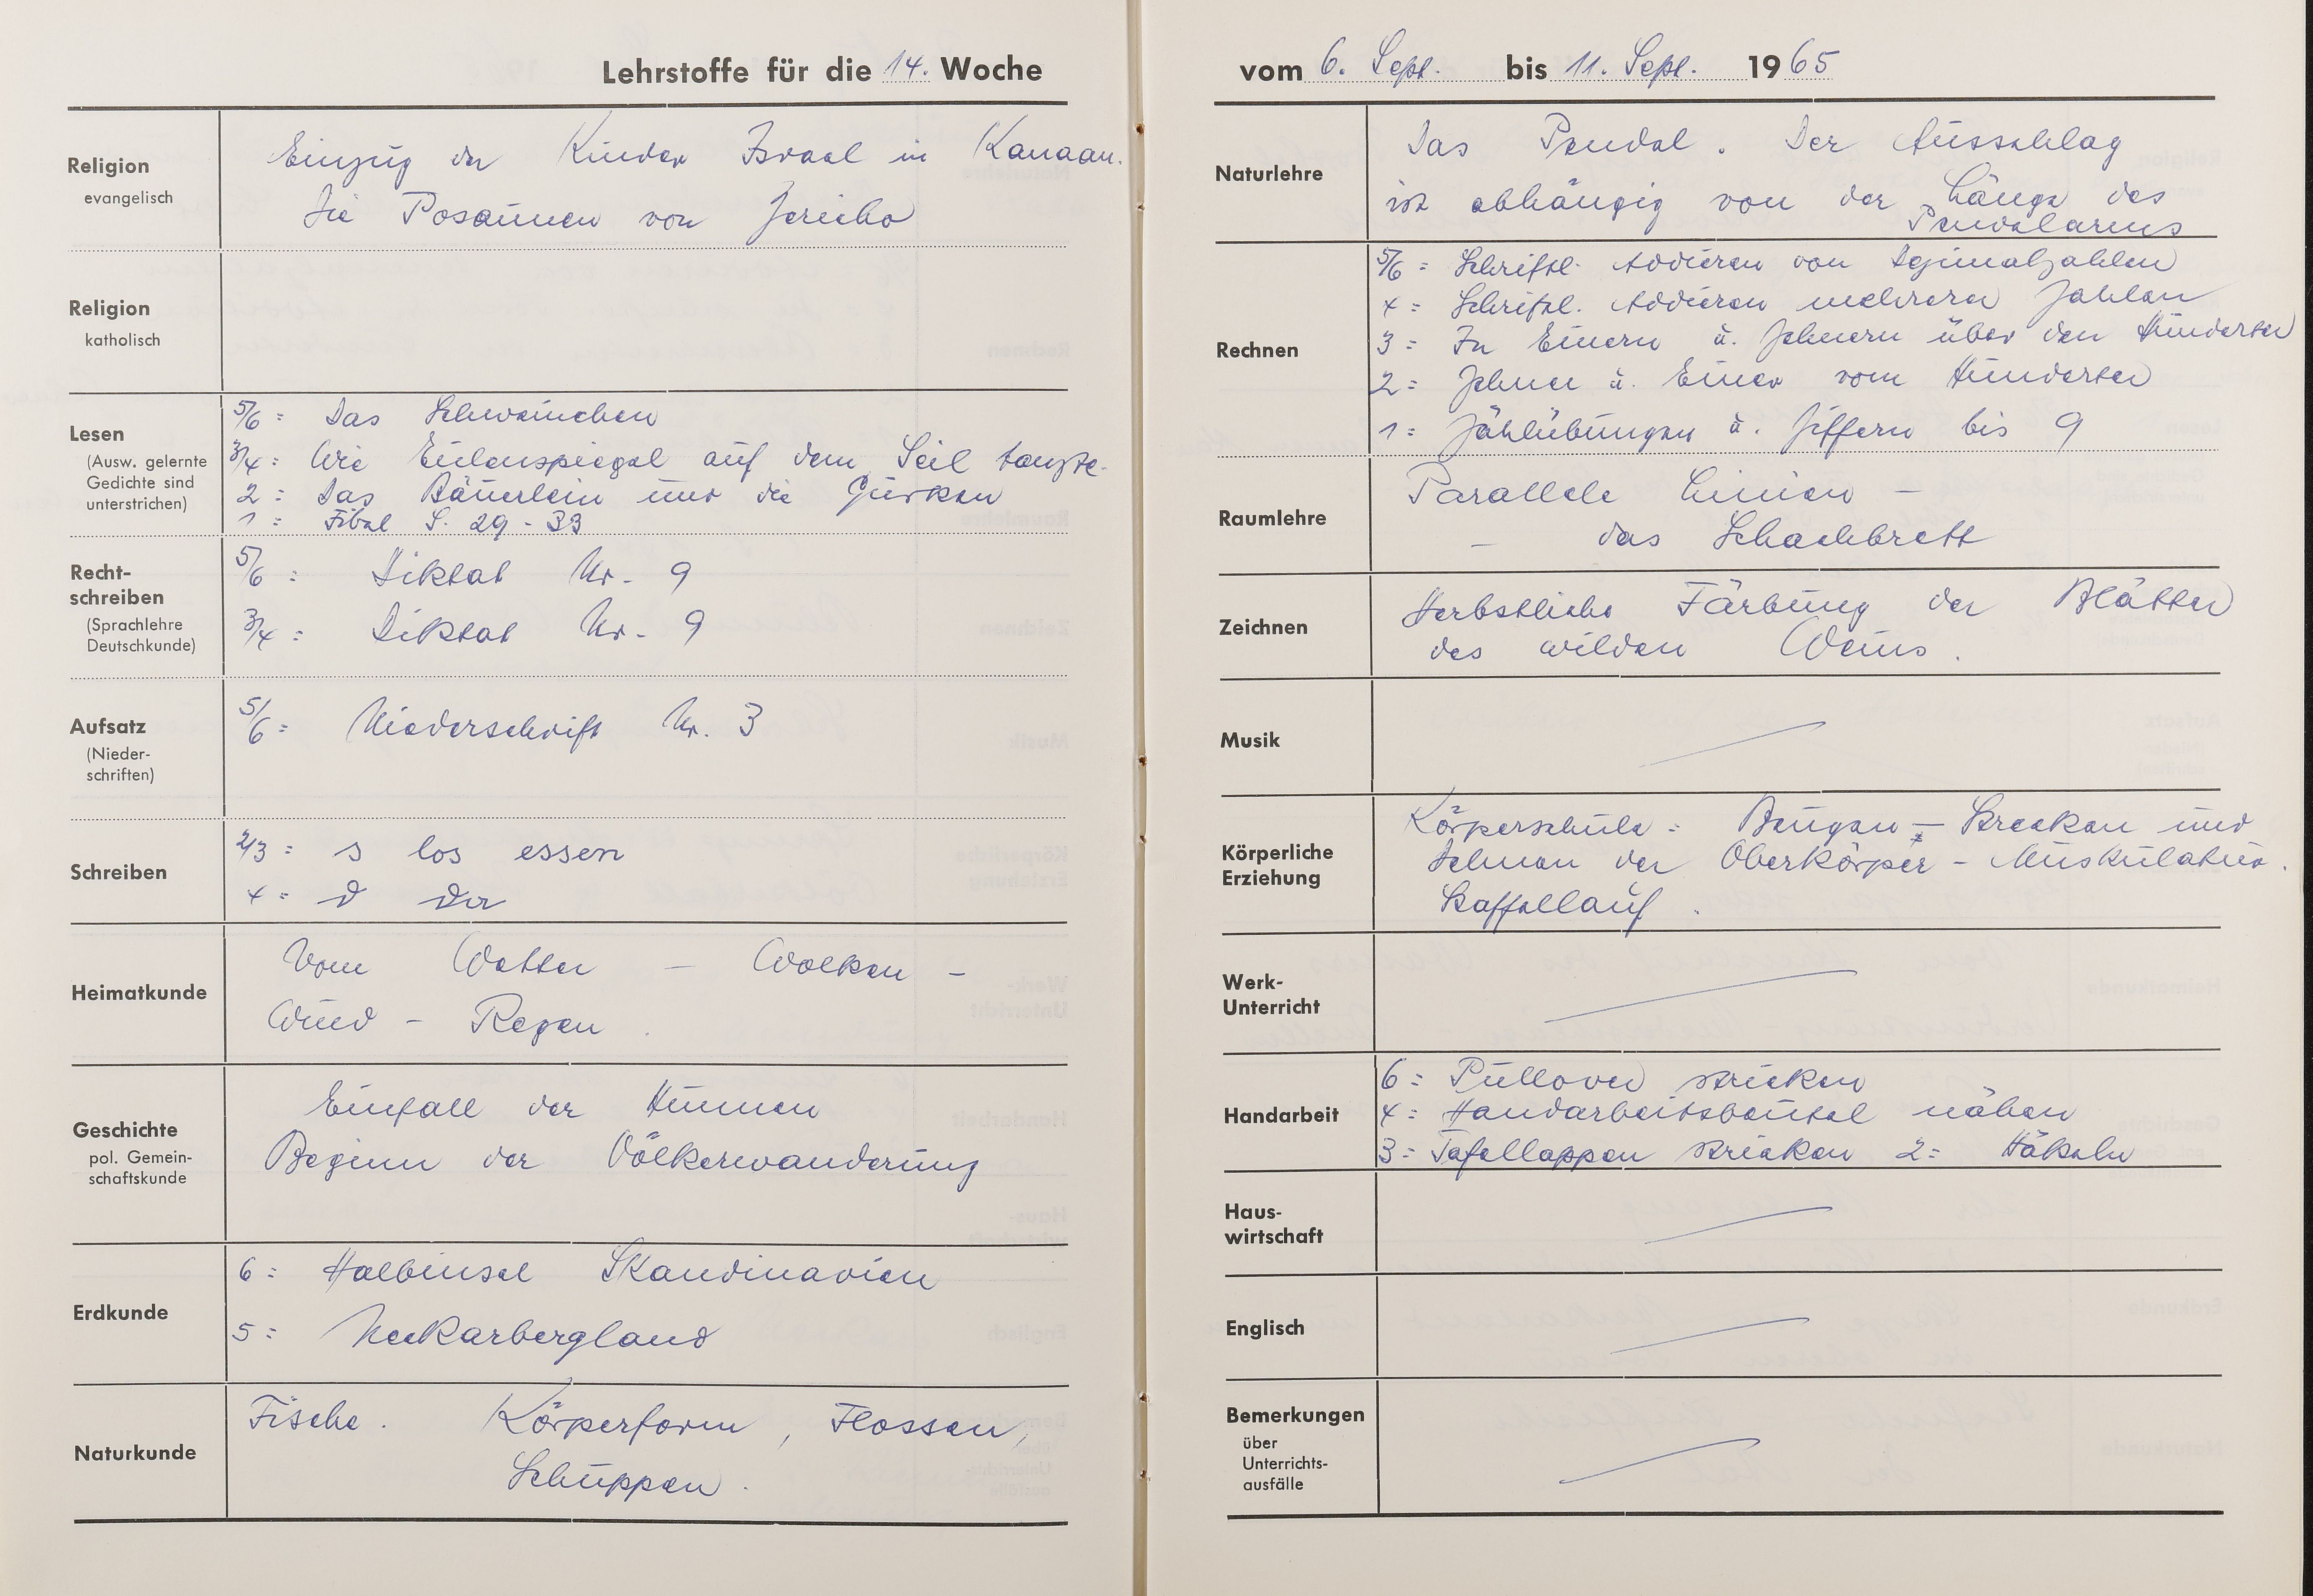 Lehrstoffe für die 14. Woche
Religion
evangelisch
Einzug der Kinder Israel in Kanaan.
Die Posaunen von Jericho
Religion
katholisch
Lesen
(Ausw. gelernte
Gedichte sind
unterstrichen)
5/6 : Das Schweinchen
3/4 : Wie Eulenspiegel auf dem Seil tanzte.
2 : Das Bäuerlein und die Gurken
1 : Fibel S. 29 - 33
Recht-
schreiben
(Sprachlehre
Deutschkunde)
5/6 : Diktat Nr. 9
3/4 : Diktat Nr. 9
Aufsatz
(Nieder-
schriften)
5/6 : Niederschrift Nr. 3
Schreiben
2/3 : s los essen
4 : d der
Heimatkunde
Vom Wetter - Wolken -
Wind - Regen .
Geschichte
pol. Gemein-
schaftskunde
Einfall der Hunnen
Beginn der Völkerwanderung
Erdkunde
6 : Halbinsel Skandinavien
5 : Neckarbergland
Naturkunde
Fische . Körperform , Flossen,
Schuppen .
vom 6. Sept. bis 11. Sept. 1965
Naturlehre
Das Pendel . Der Ausschlag
ist abhängig von der Länge des
Pendelarms
Rechnen
5/6 : Schriftl. Addieren von Dezimalzahlen
4 : Schriftl. Addieren mehrerer Zahlen
3 : In Einern u. Zehnern über den Hunderter
2 : Zehner u. Einer vom Hunderter
1 : Zählübungen u. Ziffern bis 9
Raumlehre
Parallele Linien -
- das Schachbrett
Zeichnen
Herbstliche Färbung der Blätter
des wilden Weins .
Musik
Körperliche
Erziehung
Körperschule : Beugen - Strecken und
Dehnen der Oberkörper - Muskulatur .
Staffellauf .
Werk-
Unterricht
Handarbeit
6 : Pullover stricken
4 : Handarbeitsbeutel nähen
3 : Tafellappen stricken 2 : Häkeln
Haus-
wirtschaft
Englisch
Bemerkungen
über
Unterrichts-
ausfälle